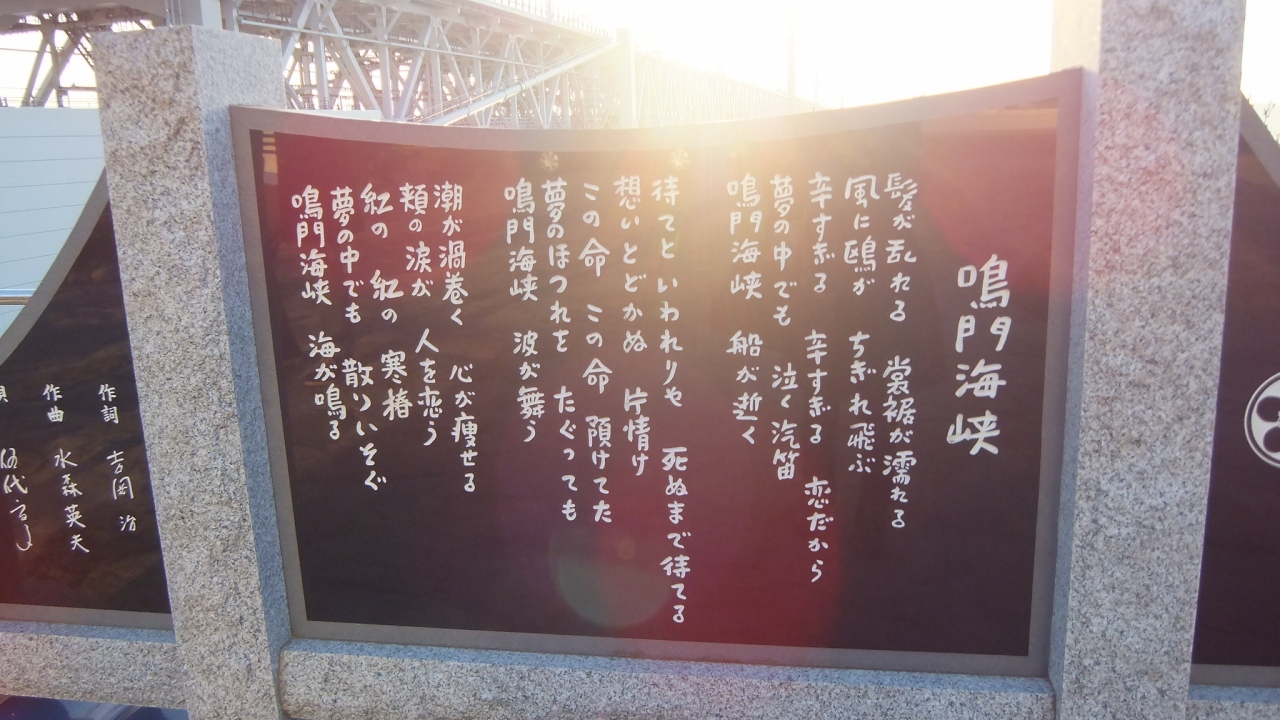 鳴門海峡
髪が乱れる 裳裾が濡れる
風に鴎が ちぎれ飛ぶ
辛すぎる 辛すぎる 恋だから
夢の中でも 泣く汽笛
鳴門海峡 船が逝く
待てといわれりゃ 死ぬまで待てる
想いとどかぬ 片情け
この命 この命 預けてた
夢のほつれを たぐっても
鳴門海峡 波が舞う
潮が渦巻く 心が痩せる
頬の涙が 人を恋う
紅の 紅の 寒椿
夢の中でも 散りいそぐ
鳴門海峡 海が鳴る
作詞 吉岡 治
作曲 水森英夫
唄